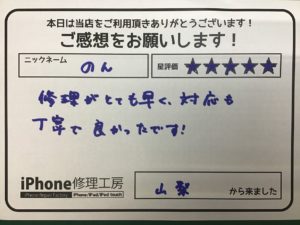 本日は当店をご利用頂きありがとうございます!
ご感想をお願いします!
ニックネーム のん 星評価 ★★★★★
修理がとても早く、対応も
丁寧で良かったです!
iPhone修理工房
iPhone Repair Factory iPhone/iPad/iPod touch
山梨 から来ました